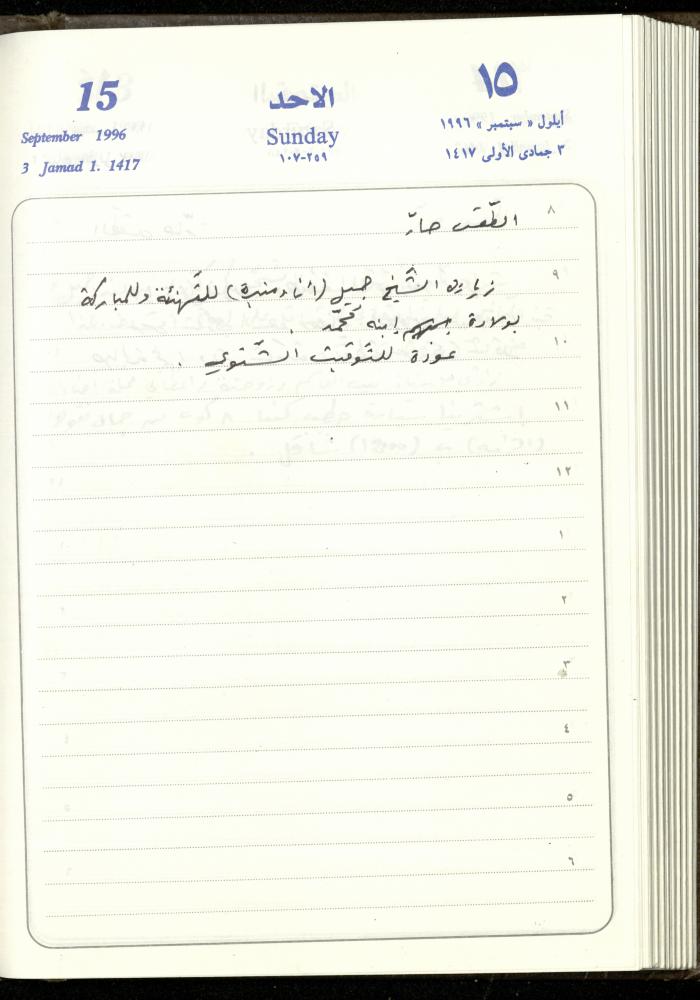 15
September 1996
3 Jamad 1. 1417
الاحد
Sunday
١٠٧-٢٥٩
١٥
أيلول « سبتمبر » ١٩٩٦
٣ جمادى الأولى ١٤١٧
٨
الطّقس حارّ
٩
زيارة الشّيخ جميل (أنا ومنيرة) للتّهنئة وللمباركة
بولادة إبنه محمّد .
١٠
عودة للتّوقيت الشّتوي .
١١
١٢
١
٢
٣
٤
٥
٦